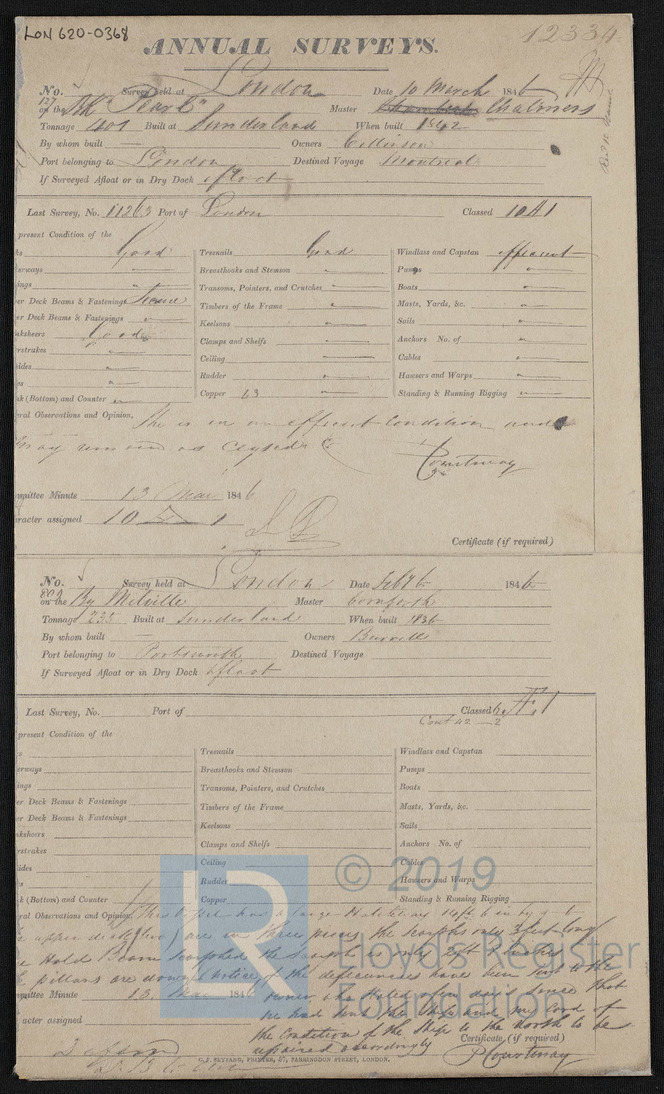 LON 620-0368
12334
ANNUAL SURVEYS.
No. Survey held at London Date 10 March 1846
127 on the Bk "Pearl" Master Chalmers
Tonnage 401 Built at Sunderland When built 1842
By whom built — Owners
Port belonging to London Destined Voyage Montreal
If Surveyed Afloat or in Dry Dock afloat
Last Survey, No. 11263 Port of London Classed 10 A 1
present Condition of the
Good Treenails Good Windlass and Capstan efficient
erways Breasthooks and Stemson Pumps
ings Transoms, Pointers, and Crutches Boats
er Deck Beams & Fastenings Timbers of the Frame Masts, Yards, &c.
er Deck Beams & Fastenings Keelsons Sails
ksheers Good Clamps and Shelfs Anchors No. of
rstrakes Ceiling Cables
ides Rudder Hawsers and Warps
k (Bottom) and Counter Copper 43 Standing & Running Rigging
ral Observations and Opinion, She is in an efficient condition and
may remain as Classed
Courtenay
mmittee Minute 13 Mar 1846
aracter assigned 10 A 1
Certificate (if required)
No. Survey held at London Date Feby 6 1846
809 on the Bg Melville Master Cornforth
Tonnage 235 Built at Sunderland When built 1836
By whom built — Owners
Port belonging to Portsmouth Destined Voyage
If Surveyed Afloat or in Dry Dock afloat
Last Survey, No. Port of Classed A 1
Cont 42 — 2
present Condition of the
Treenails Windlass and Capstan
erways Breasthooks and Stemson Pumps
ings Transoms, Pointers, and Crutches Boats
er Deck Beams & Fastenings Timbers of the Frame Masts, Yards, &c.
er Deck Beams & Fastenings Keelsons Sails
ksheers Clamps and Shelfs Anchors No. of
rstrakes Ceiling Cables
ides Rudder Hawsers and Warps
k (Bottom) and Counter Copper Standing & Running Rigging
ral Observations and Opinion, This vessel has a large Hatchway 14 ft 6 in by
are in three pieces the Scarphs only 3 feet long
Hold Beam scarphed the Scarph is only 2 ft
pillars are down notice of the deficiencies have been sent to the
mmittee Minute 13 Mar 1846 owner, who stated since that
acter assigned he had sent the Ship and
the Condition of the Ship to the North to be
repaired accordingly
Certificate (if required)
Courtenay
C. F. SEYFANG, PRINTER, 57, FARRINGDON STREET, LONDON.
LR
© 2019
Lloyd's Register
Foundation